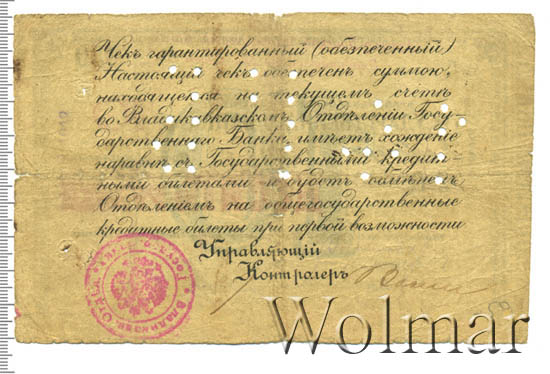 Чекъ гарантированный (обезпеченный)
Настоящiй чекъ обезпеченъ суммою,
находящеюся на текущемъ счету
во Владикавказскомъ Отдѣленiи Госу-
дарственнаго Банка, имѣетъ хожденiе
наравнѣ съ Государственными кредит-
ными билетами и будетъ обмѣненъ
Отдѣленiемъ на общегосударственные
кредитные билеты при первой возможности
Управляющiй
Контролеръ
Wolmar